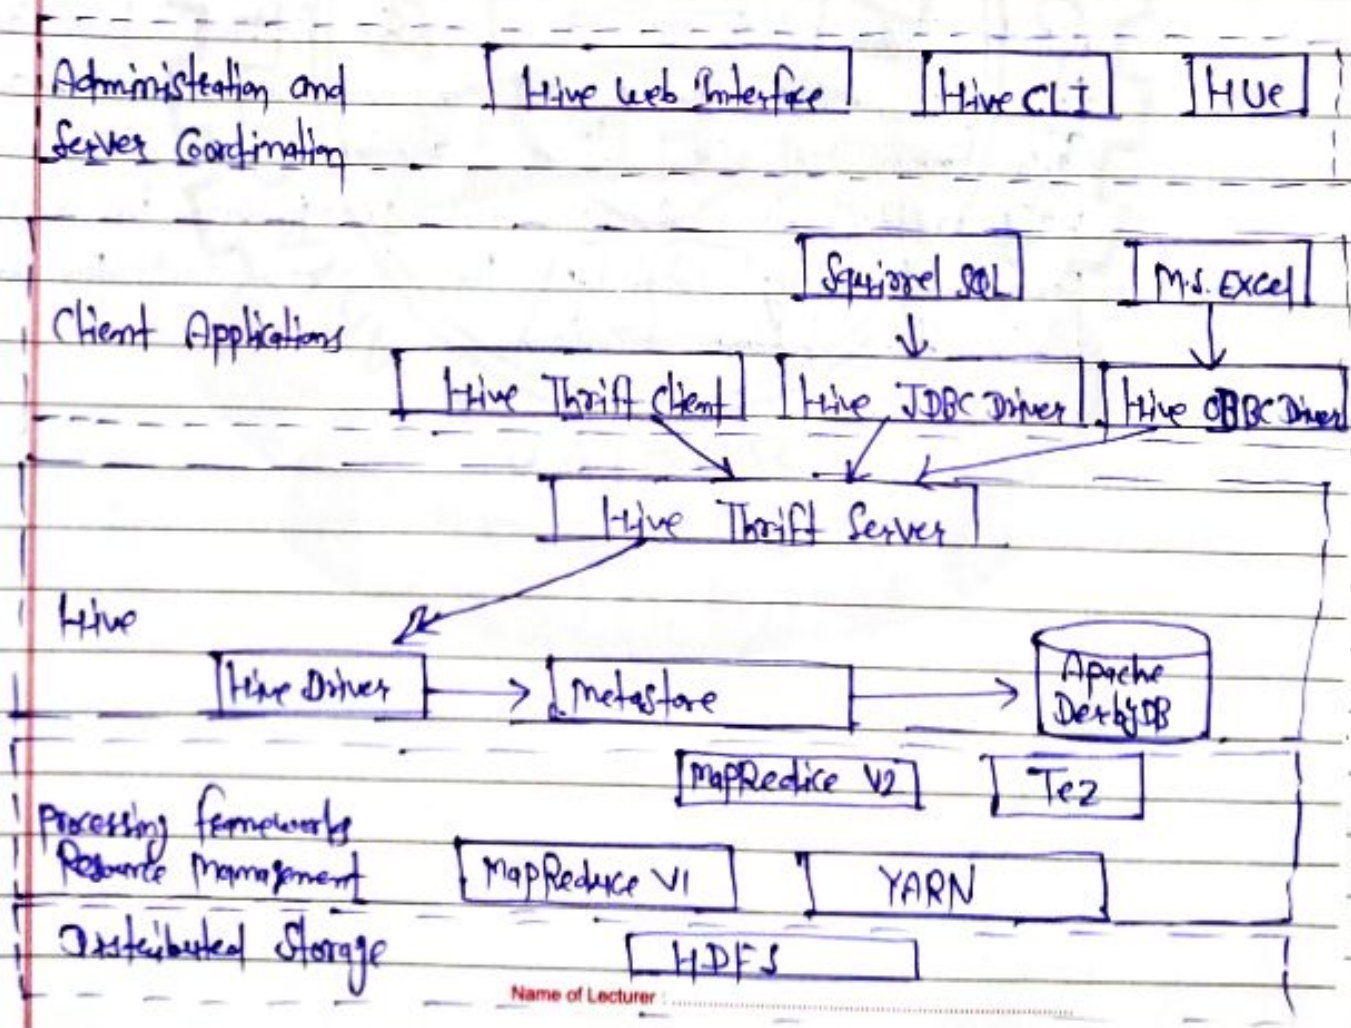 Administration and
Server Coordination
Hive Web Interface
Hive CLI
HUe
Client Applications
Squirrel SQL
M.S. Excel
Hive Thrift Client
Hive JDBC Driver
Hive ODBC Driver
Hive Thrift Server
Hive
Hive Driver
Metastore
Apache
DerbyDB
MapRedice V2
Tez
Processing frameworks
Resource Management
MapReduce V1
YARN
Distributed Storage
HDFS
Name of Lecturer :